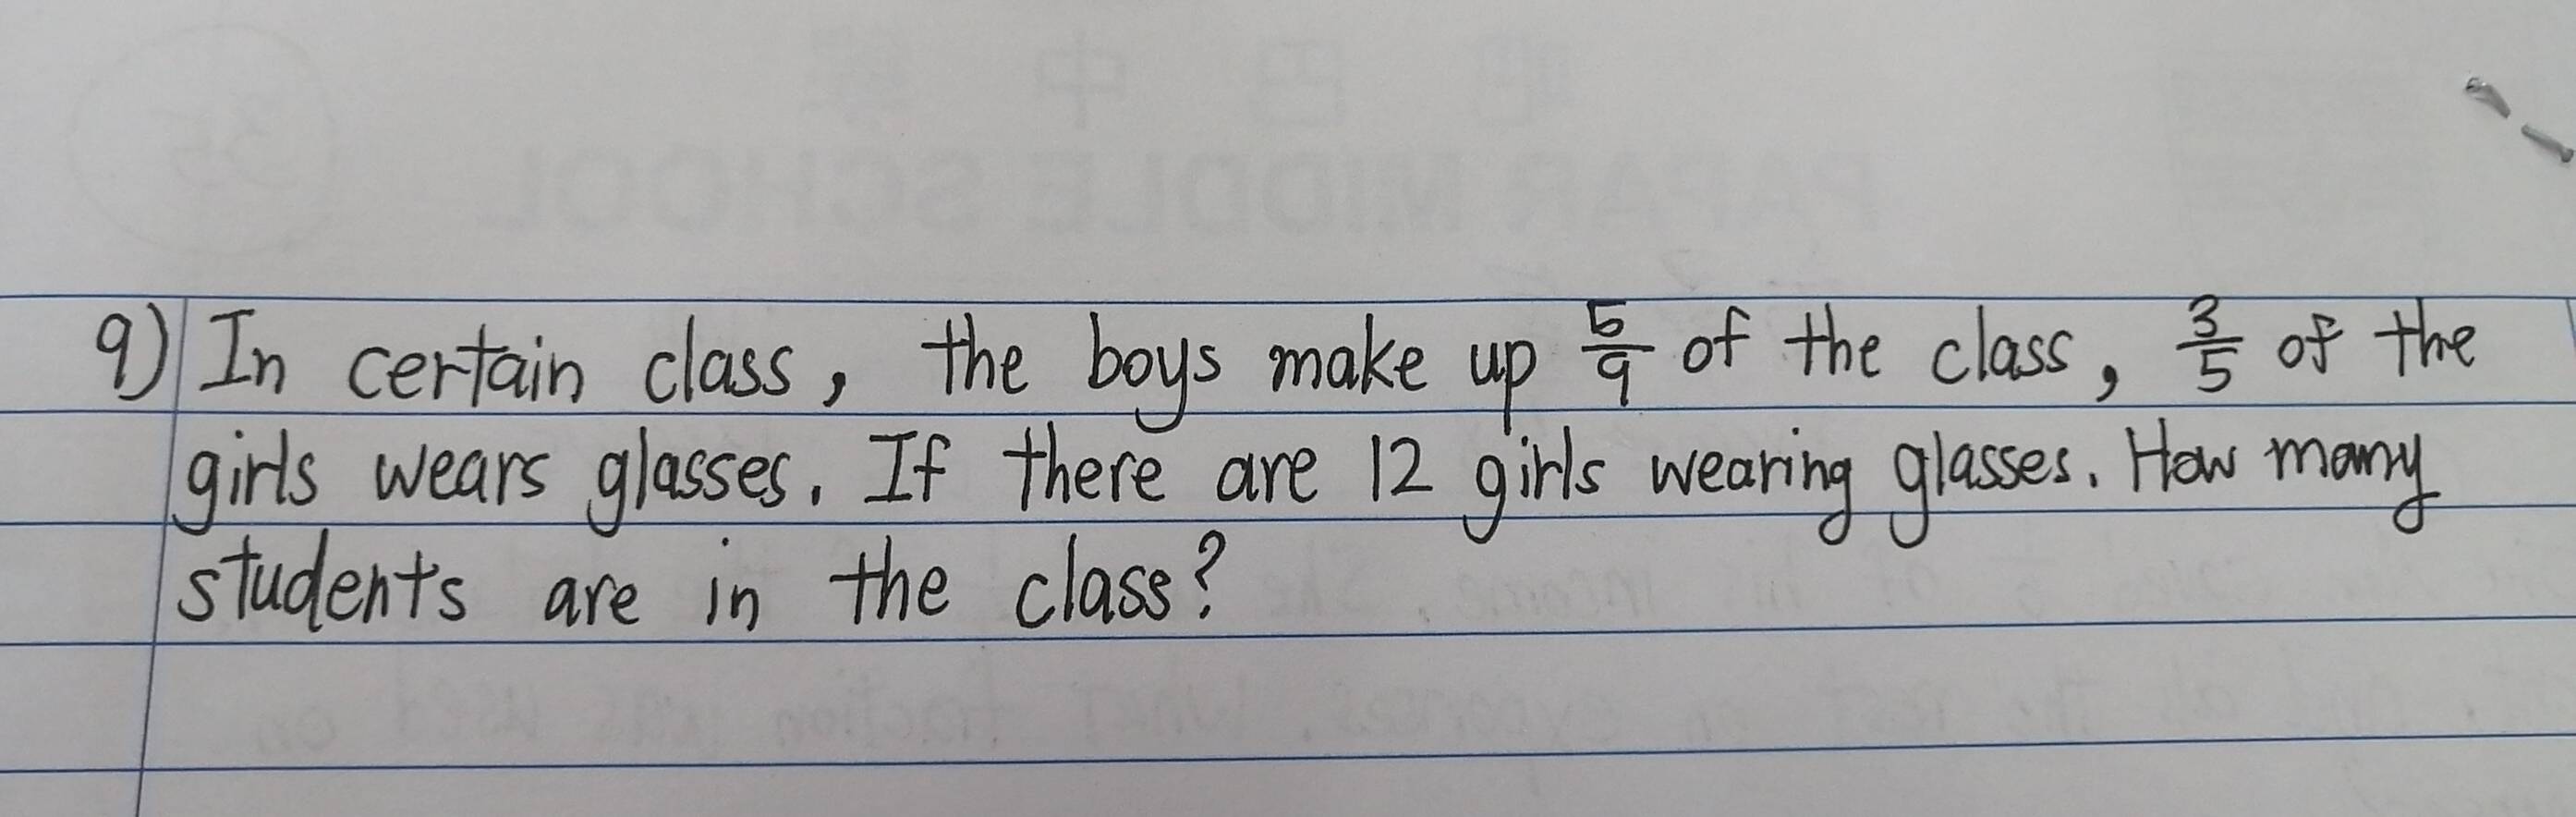 9) In certain class, the boys make up 5/9 of the class, 3/5 of the
girls wears glasses. If there are 12 girls wearing glasses. How many
students are in the class?